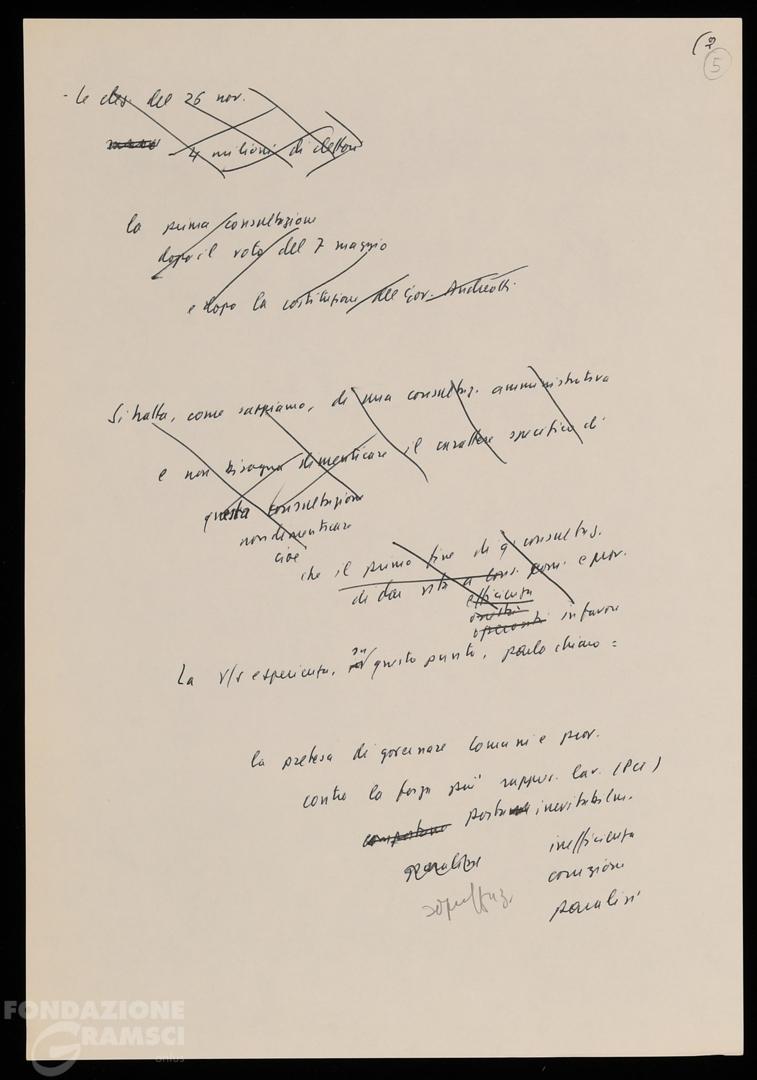 5
- Le elez. del 26 nov.
4 milioni di elettori
la prima consultazione
dopo il voto del 7 maggio
e dopo la costituzione del Gov. Andreotti.
Si tratta, come sappiamo, di una consultaz. amministrativa
e non bisogna dimenticare il carattere specifico di
questa consultazione
non dimenticare
cioè
che il primo fine di q. consultaz.
di dar vita a cons. com. e prov.
efficienza
operosità in favore
La v/s esperienza, su questo punto, parla chiaro =
la pretesa di governare Comuni e prov.
contro la forza più rappres. lav. (PCI)
comportano porta inevitabilm.
paralisi inefficienza
corruzione
sopraffaz. paralisi
FONDAZIONE
GRAMSCI
onlus